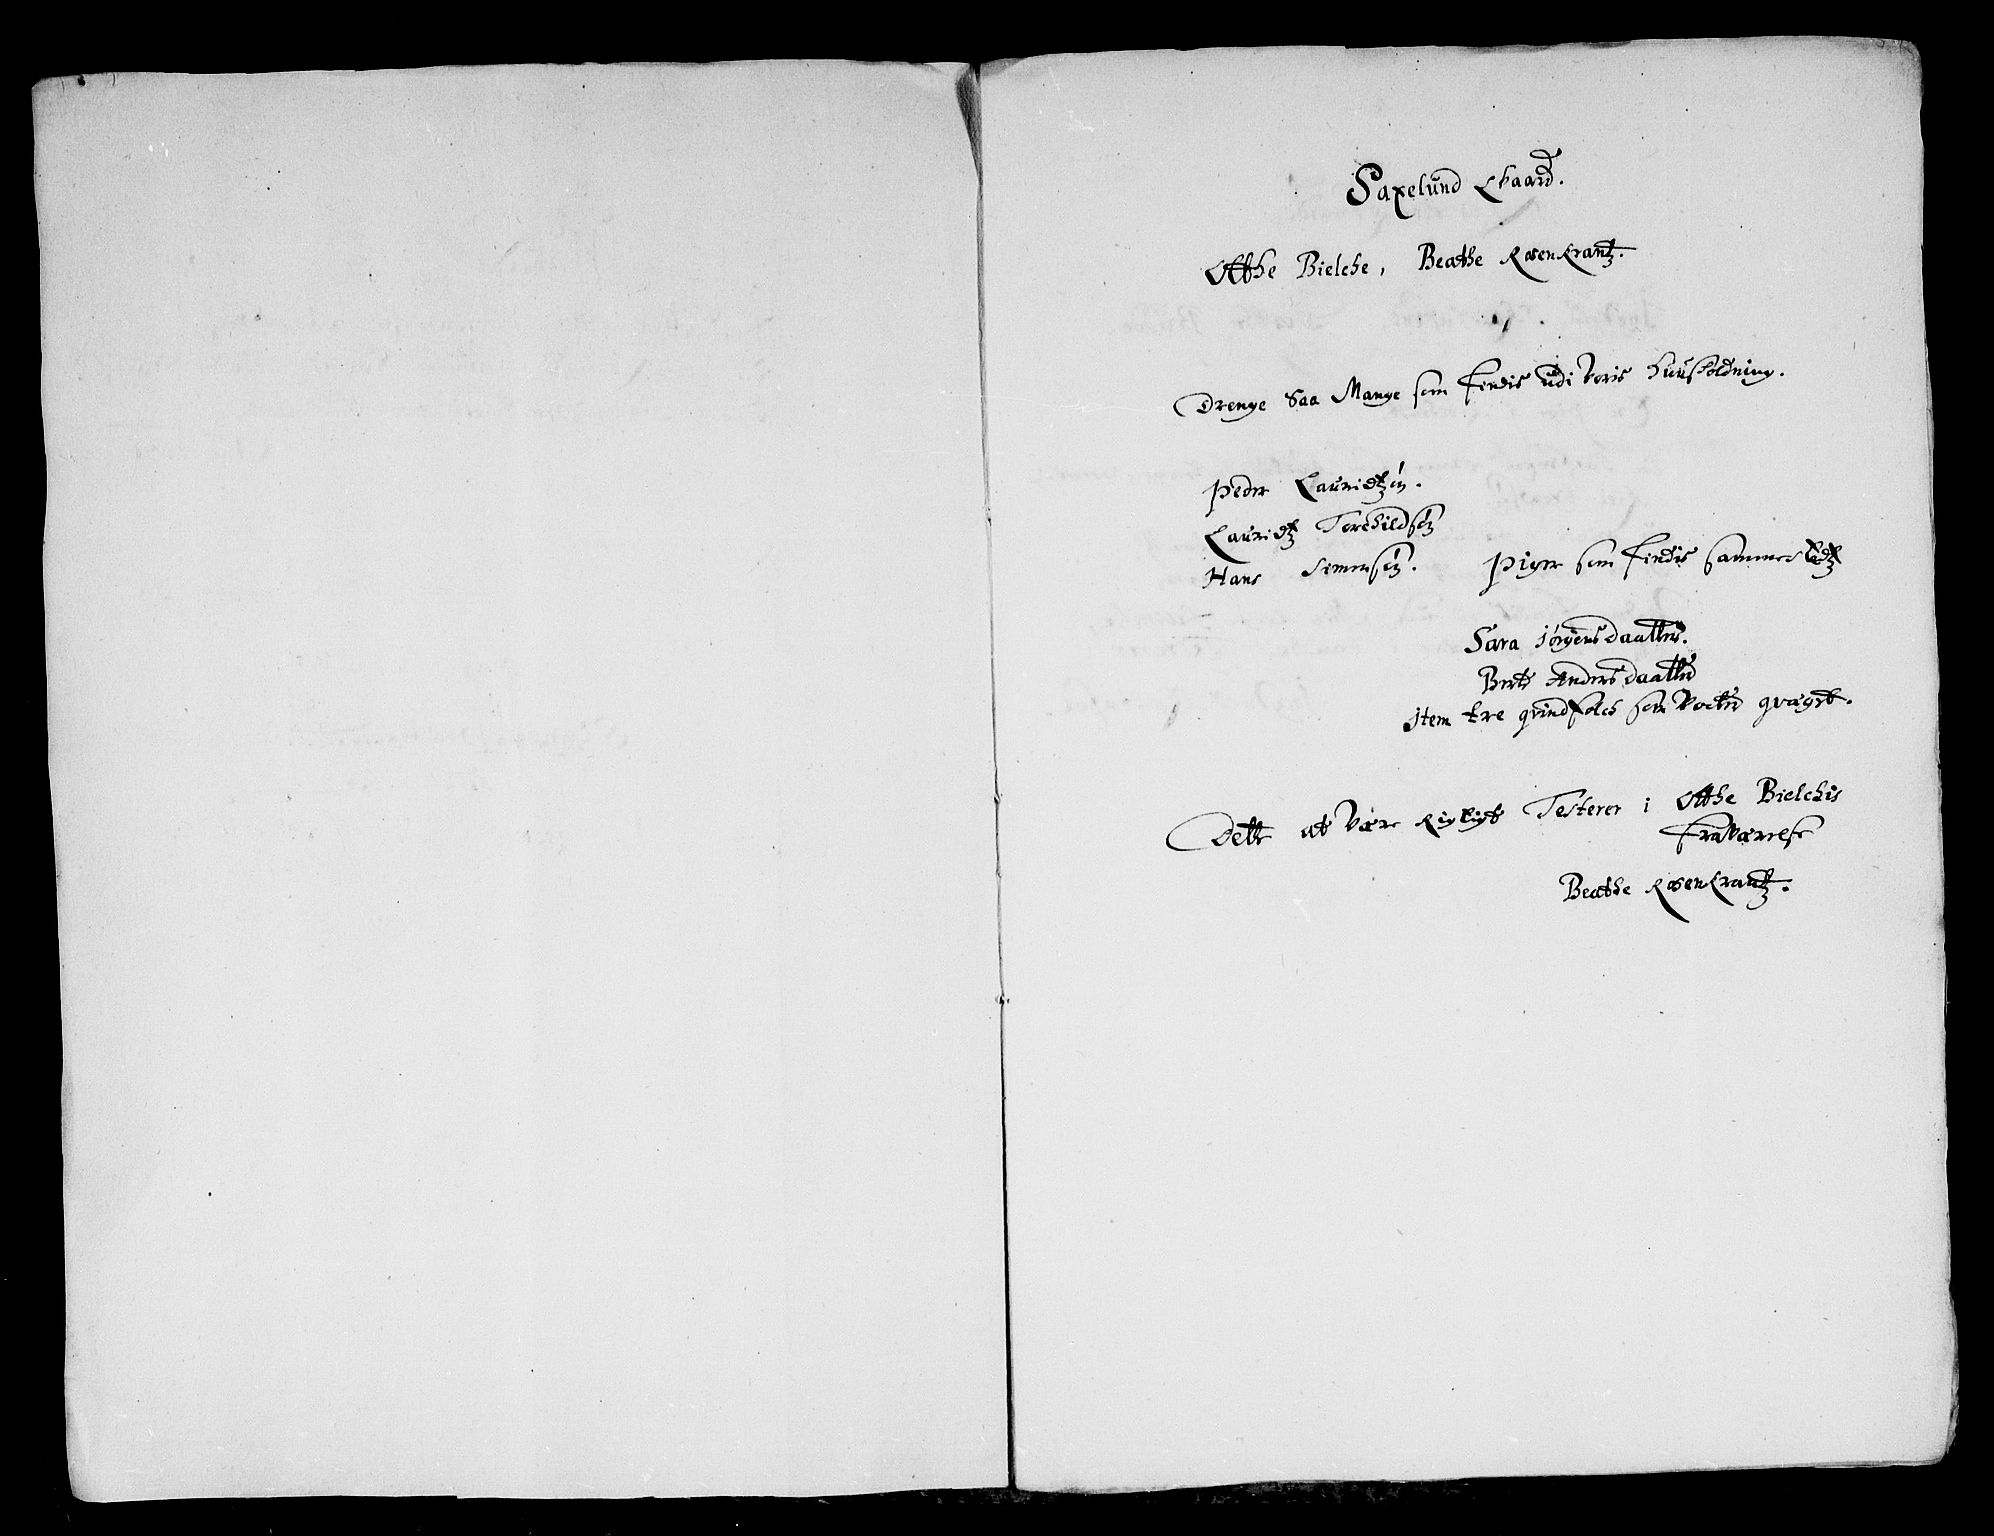 Saxelund Ghaard.
Otthe Bielche, Beathe Rosenkrantz.
Drenge Saa Mange som findis udi Voris Huusholdning.
Peder Lauridtzen.
Lauridtz Torchildsen
Hans Simensen. Piger som findis sammesteds
Sara Jørgensdaatter.
Berte Andersdaatter
item tre qvindfolch som Vocter qvæget.
Dette at Være Rigtigt Testerer i Otthe Bielchis
fraværelse
Beathe Rosenkrantz.